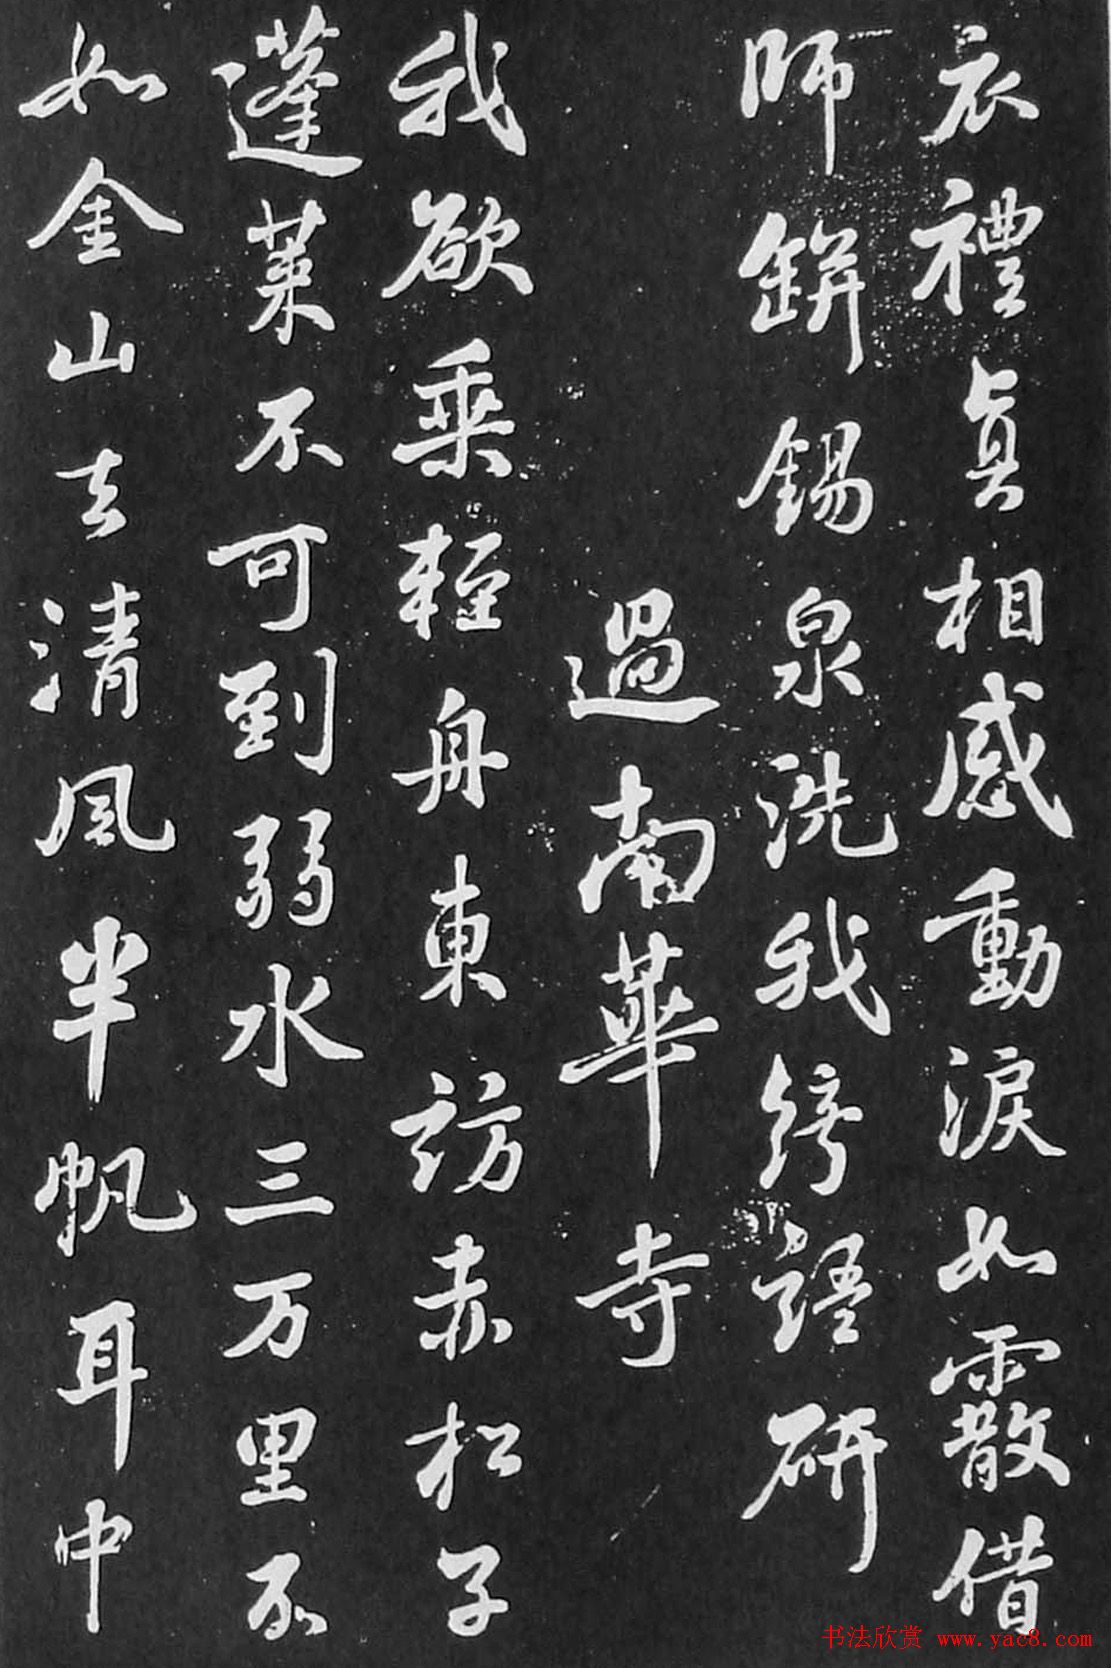 衣禮真相感動淚如霰借
師錫泉洗我綺語研
過南華寺
我欲乘輕舟東訪赤松子
蓬萊不可到弱水三万里不
如金山去清風半帆耳中
书法欣赏 www.yac8.com